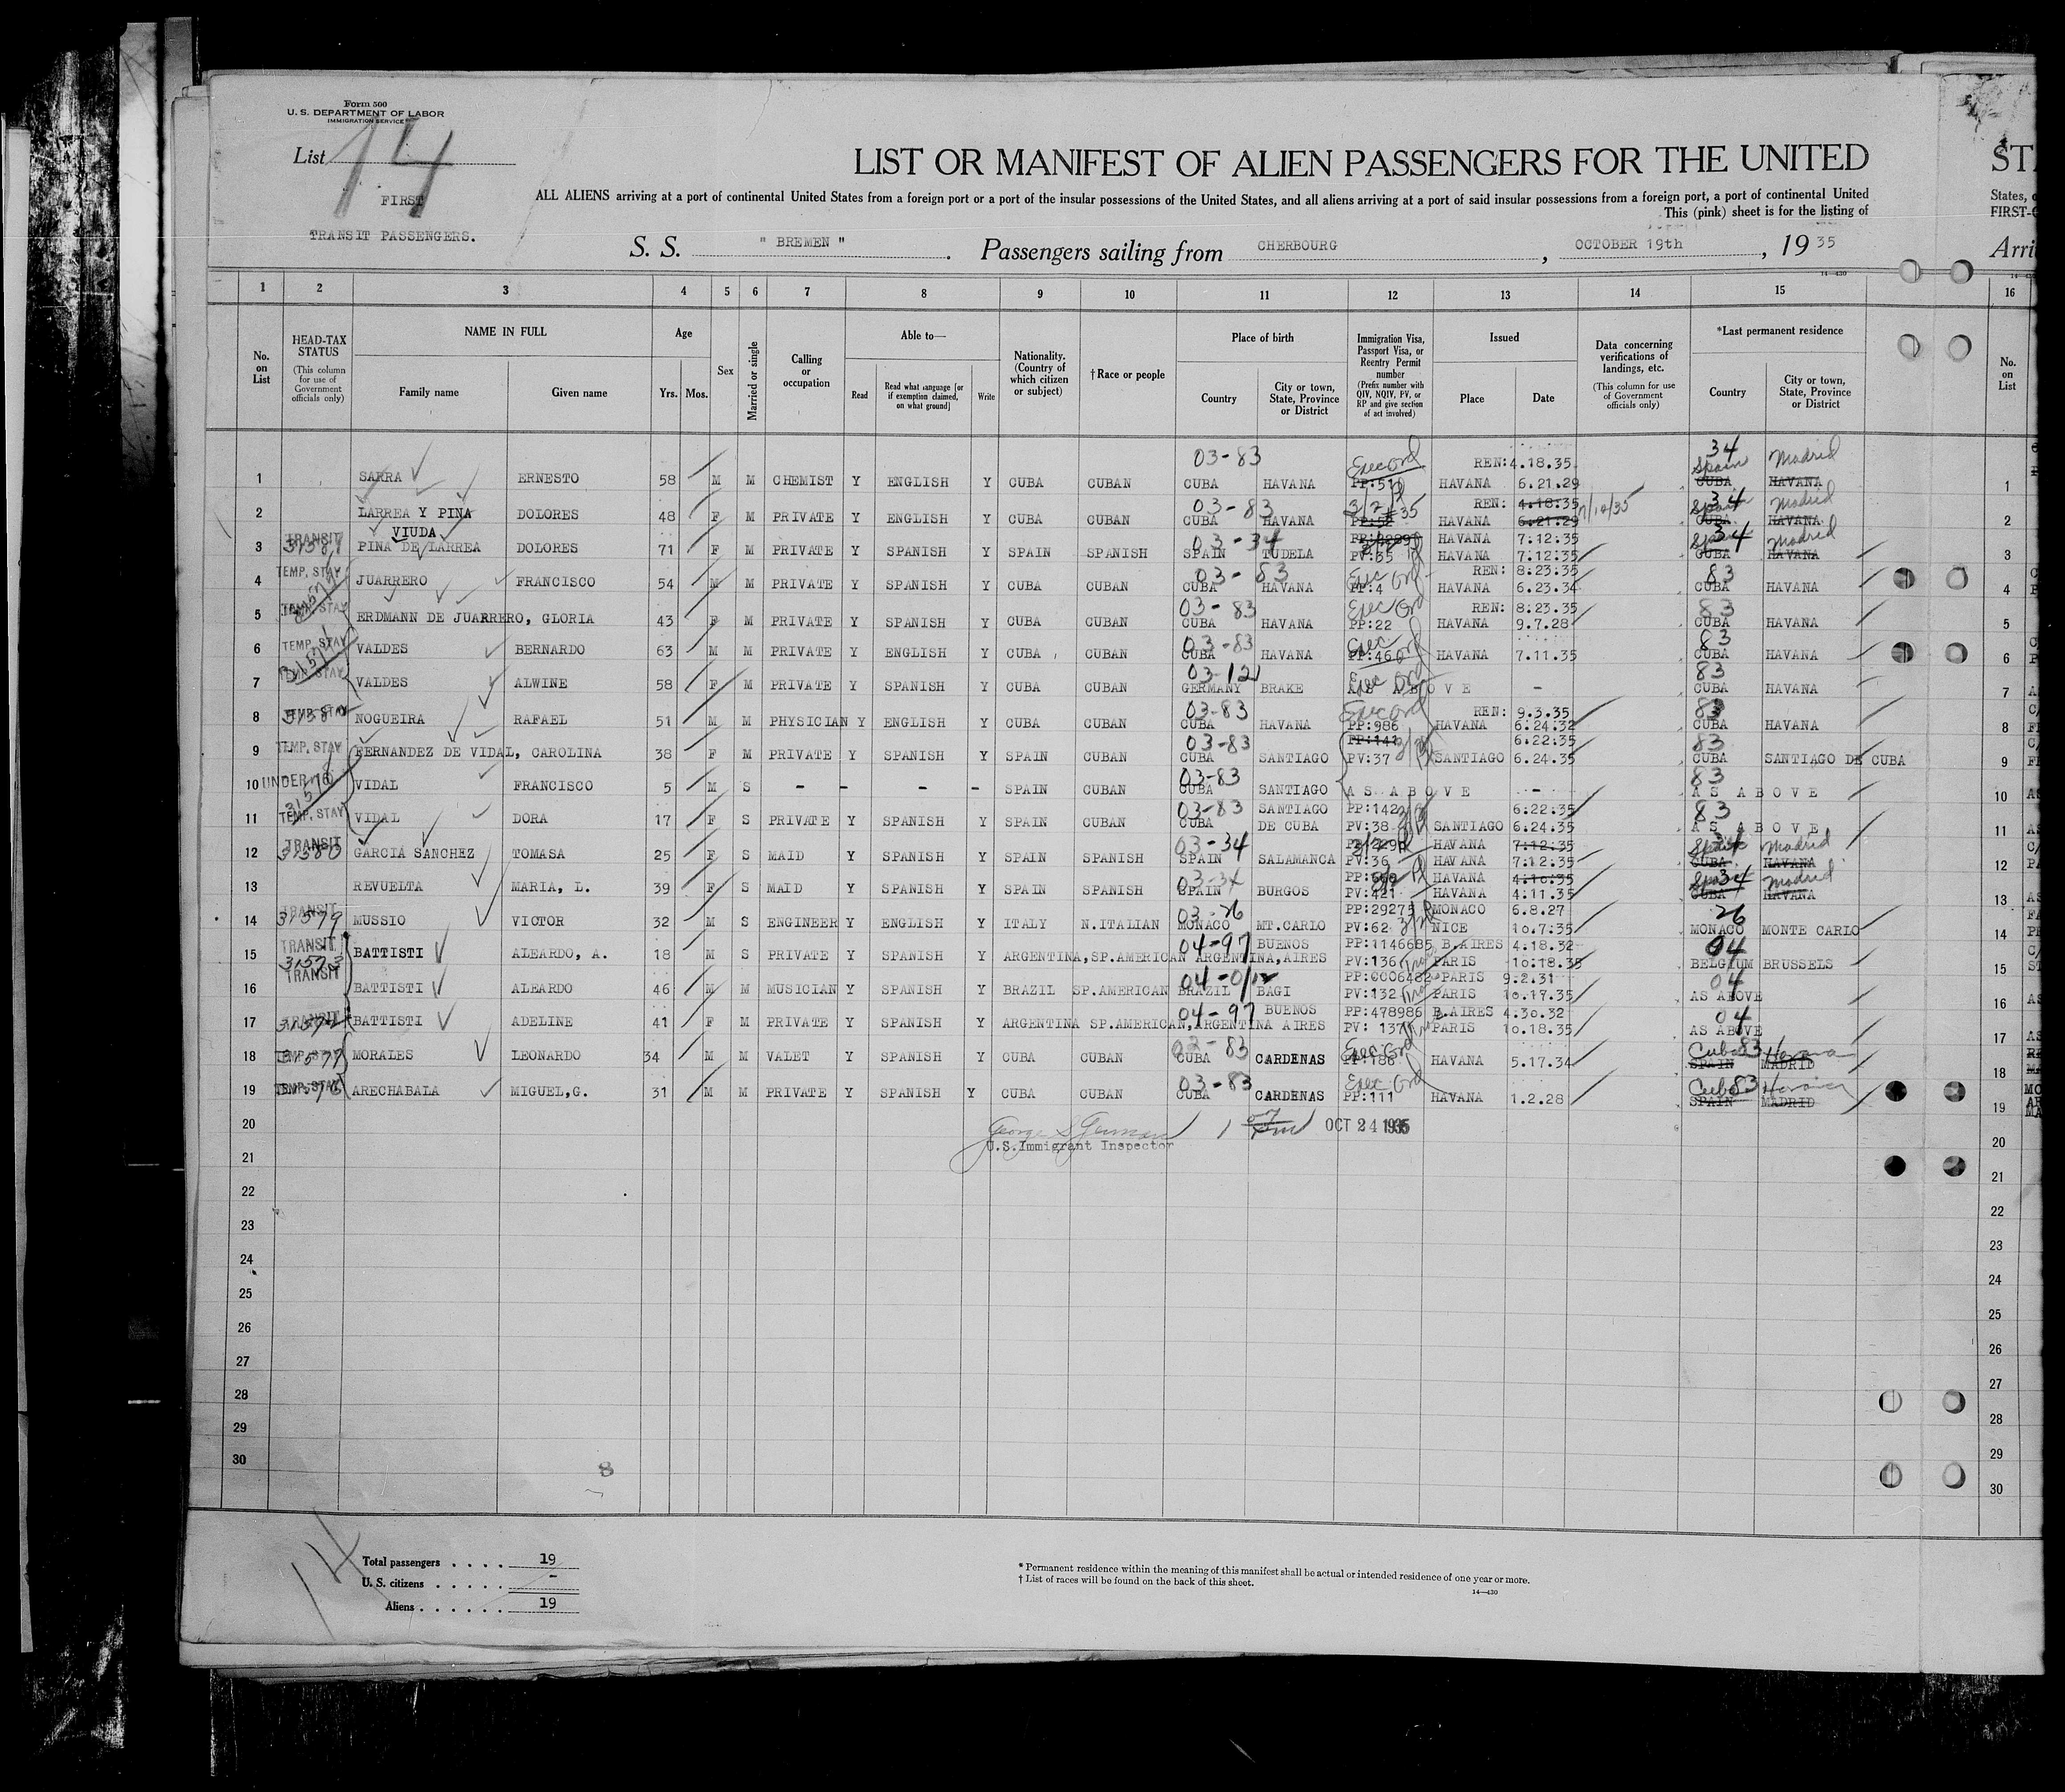 Form 500
U. S. DEPARTMENT OF LABOR
IMMIGRATION SERVICE
List 14
FIRST
TRANSIT PASSENGERS.
LIST OR MANIFEST OF ALIEN PASSENGERS FOR THE UNITED
ALL ALIENS arriving at a port of continental United States from a foreign port or a port of the insular possessions of the United States, and all aliens arriving at a port of said insular possessions from a foreign port, a port of continental United
This (pink) sheet is for the listing of
S. S. " BREMEN " . Passengers sailing from CHERBOURG , OCTOBER 19th , 19 35
14—430
1 2 3 4 5 6 7 8 9 10 11 12 13 14 15
No. on List
HEAD-TAX STATUS (This column for use of Government officials only)
NAME IN FULL
Family name Given name
Age
Yrs. Mos.
Sex
Married or single
Calling or occupation
Able to—
Read Read what language [or if exemption claimed, on what ground] Write
Nationality. (Country of which citizen or subject)
†Race or people
Place of birth
Country City or town, State, Province or District
Immigration Visa, Passport Visa, or Reentry Permit number (Prefix number with QIV, NQIV, PV, or RP and give section of act involved)
Issued
Place Date
Data concerning verifications of landings, etc. (This column for use of Government officials only)
*Last permanent residence
Country City or town, State, Province or District
03-83 Exec Ord REN: 4.18.35 34 Spain Madrid
1 SARRA ERNESTO 58 M M CHEMIST Y ENGLISH Y CUBA CUBAN CUBA HAVANA PP:51 HAVANA 6.21.29 CUBA HAVANA
03-83 REN: 4.18.35 34 Spain Madrid
2 LARREA Y PINA DOLORES 48 F M PRIVATE Y ENGLISH Y CUBA CUBAN CUBA HAVANA PP:52 HAVANA 6.21.29 7/12/35 CUBA HAVANA
TRANSIT VIUDA 03-34 HAVANA 7:12:35 Spain 34 Madrid
3 PINA DE LARREA DOLORES 71 F M PRIVATE Y SPANISH Y SPAIN SPANISH SPAIN TUDELA PV:35 HAVANA 7:12:35 CUBA HAVANA
TEMP. STAY 03-83 Exec Ord REN: 8:23:35 83
4 JUARRERO FRANCISCO 54 M M PRIVATE Y SPANISH Y CUBA CUBAN CUBA HAVANA PP:4 HAVANA 6.23.34 CUBA HAVANA
TEMP. STAY 03-83 Exec Ord REN: 8.23.35 83
5 ERDMANN DE JUARRERO, GLORIA 43 F M PRIVATE Y SPANISH Y CUBA CUBAN CUBA HAVANA PP:22 HAVANA 9.7.28 CUBA HAVANA
TEMP. STAY 03-83 Exec Ord 83
6 VALDES BERNARDO 63 M M PRIVATE Y ENGLISH Y CUBA CUBAN CUBA HAVANA PP:46 HAVANA 7.11.35 CUBA HAVANA
TEMP. STAY 03-121 Exec Ord 83
7 VALDES ALWINE 58 F M PRIVATE Y SPANISH Y CUBA CUBAN GERMANY BRAKE AS ABOVE - CUBA HAVANA
TEMP. STAY 03-83 Exec Ord REN: 9.3.35 83
8 NOGUEIRA RAFAEL 51 M M PHYSICIAN Y ENGLISH Y CUBA CUBAN CUBA HAVANA PP:986 HAVANA 6:24:32 CUBA HAVANA
TEMP. STAY 03-83 PP:141 6:22:35 83
9 FERNANDEZ DE VIDAL, CAROLINA 38 F M PRIVATE Y SPANISH Y SPAIN CUBAN CUBA SANTIAGO PV:37 SANTIAGO 6.24.35 CUBA SANTIAGO DE CUBA
UNDER 16 03-83 83
10 VIDAL FRANCISCO 5 M S - - - - SPAIN CUBAN CUBA SANTIAGO AS ABOVE - AS ABOVE
03-83 SANTIAGO PP:142 6:22:35 83
11 TEMP. STAY VIDAL DORA 17 F S PRIVATE Y SPANISH Y SPAIN CUBAN CUBA DE CUBA PV:38 SANTIAGO 6.24.35 AS ABOVE
TRANSIT 03-34 HAVANA 7:12:35 Spain 34 Madrid
12 31580 GARCIA SANCHEZ TOMASA 25 F S MAID Y SPANISH Y SPAIN SPANISH SPAIN SALAMANCA PV:36 HAVANA 7:12:35 CUBA HAVANA
03-34 HAVANA 4:10:35 Spain 34 Madrid
13 REVUELTA MARIA, L. 39 F S MAID Y SPANISH Y SPAIN SPANISH SPAIN BURGOS PV:421 HAVANA 4:11.35 CUBA HAVANA
TRANSIT 03-26 PP:29275 MONACO 6.8.27 26
14 31579 MUSSIO VICTOR 32 M S ENGINEER Y ENGLISH Y ITALY N.ITALIAN MONACO MT.CARLO PV:62 NICE 10.7:35 MONACO MONTE CARLO
TRANSIT 04-97 BUENOS PP:1146685 B.AIRES 4:18.32 04
15 31573 BATTISTI ALEARDO, A. 18 M S PRIVATE Y SPANISH Y ARGENTINA, SP.AMERICAN ARGENTINA, AIRES PV:136 PARIS 10:18.35 BELGIUM BRUSSELS
TRANSIT PP:0006482 PARIS 9.2.31 04
16 BATTISTI ALEARDO 46 M M MUSICIAN Y SPANISH Y BRAZIL SP.AMERICAN BRAZIL BAGI PV:132 PARIS 10.17.35 AS ABOVE
TRANSIT 04-97 BUENOS PP:478986 B.AIRES 4.30.32 04
17 BATTISTI ADELINE 41 F M PRIVATE Y SPANISH Y ARGENTINA SP.AMERICAN, ARGENTINA AIRES PV: 137 PARIS 10.18.35 AS ABOVE
03-83 Exec Ord Cuba 83 Havana
18 TEMP. STAY MORALES LEONARDO 34 M M VALET Y SPANISH Y CUBA CUBAN CUBA CARDENAS PP:186 HAVANA 5.17.34 SPAIN MADRID
03-83 Exec Ord Cuba 83 Havana
19 TEMP. STAY ARECHABALA MIGUEL,G. 31 M M PRIVATE Y SPANISH Y CUBA CUBAN CUBA CARDENAS PP:111 HAVANA 1.2.28 SPAIN MADRID
20 OCT 24 1935
21 U.S.Immigrant Inspector
22
23
24
25
26
27
28
29
30
8
14
Total passengers . . . . 19
U. S. citizens . . . . . -
Aliens . . . . . . 19
* Permanent residence within the meaning of this manifest shall be actual or intended residence of one year or more.
† List of races will be found on the back of this sheet.
14—430
States,
FIRST-
16
No. on List
1
2
3
4
5
6
7
8
9
10
11
12
13
14
15
16
17
18
19
20
21
22
23
24
25
26
27
28
29
30